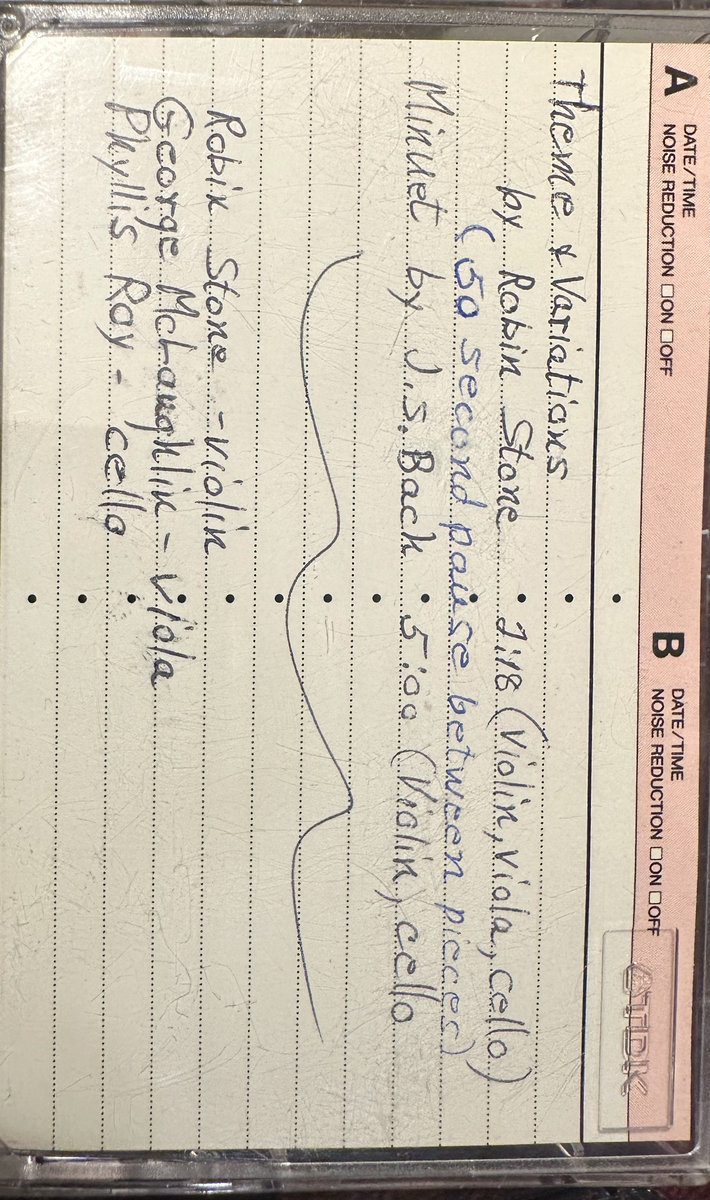 A DATE/TIME
NOISE REDUCTION □ON □OFF
B DATE/TIME
NOISE REDUCTION □ON □OFF
TDK
Theme & Variations
by Robin Stone 7:18 (Violin, viola, cello)
(50 second pause between pieces)
Minuet by J.S. Bach 5:00 (Violin, cello
Robin Stone - violin
George McLaughlin - viola
Phyllis Ray - cello